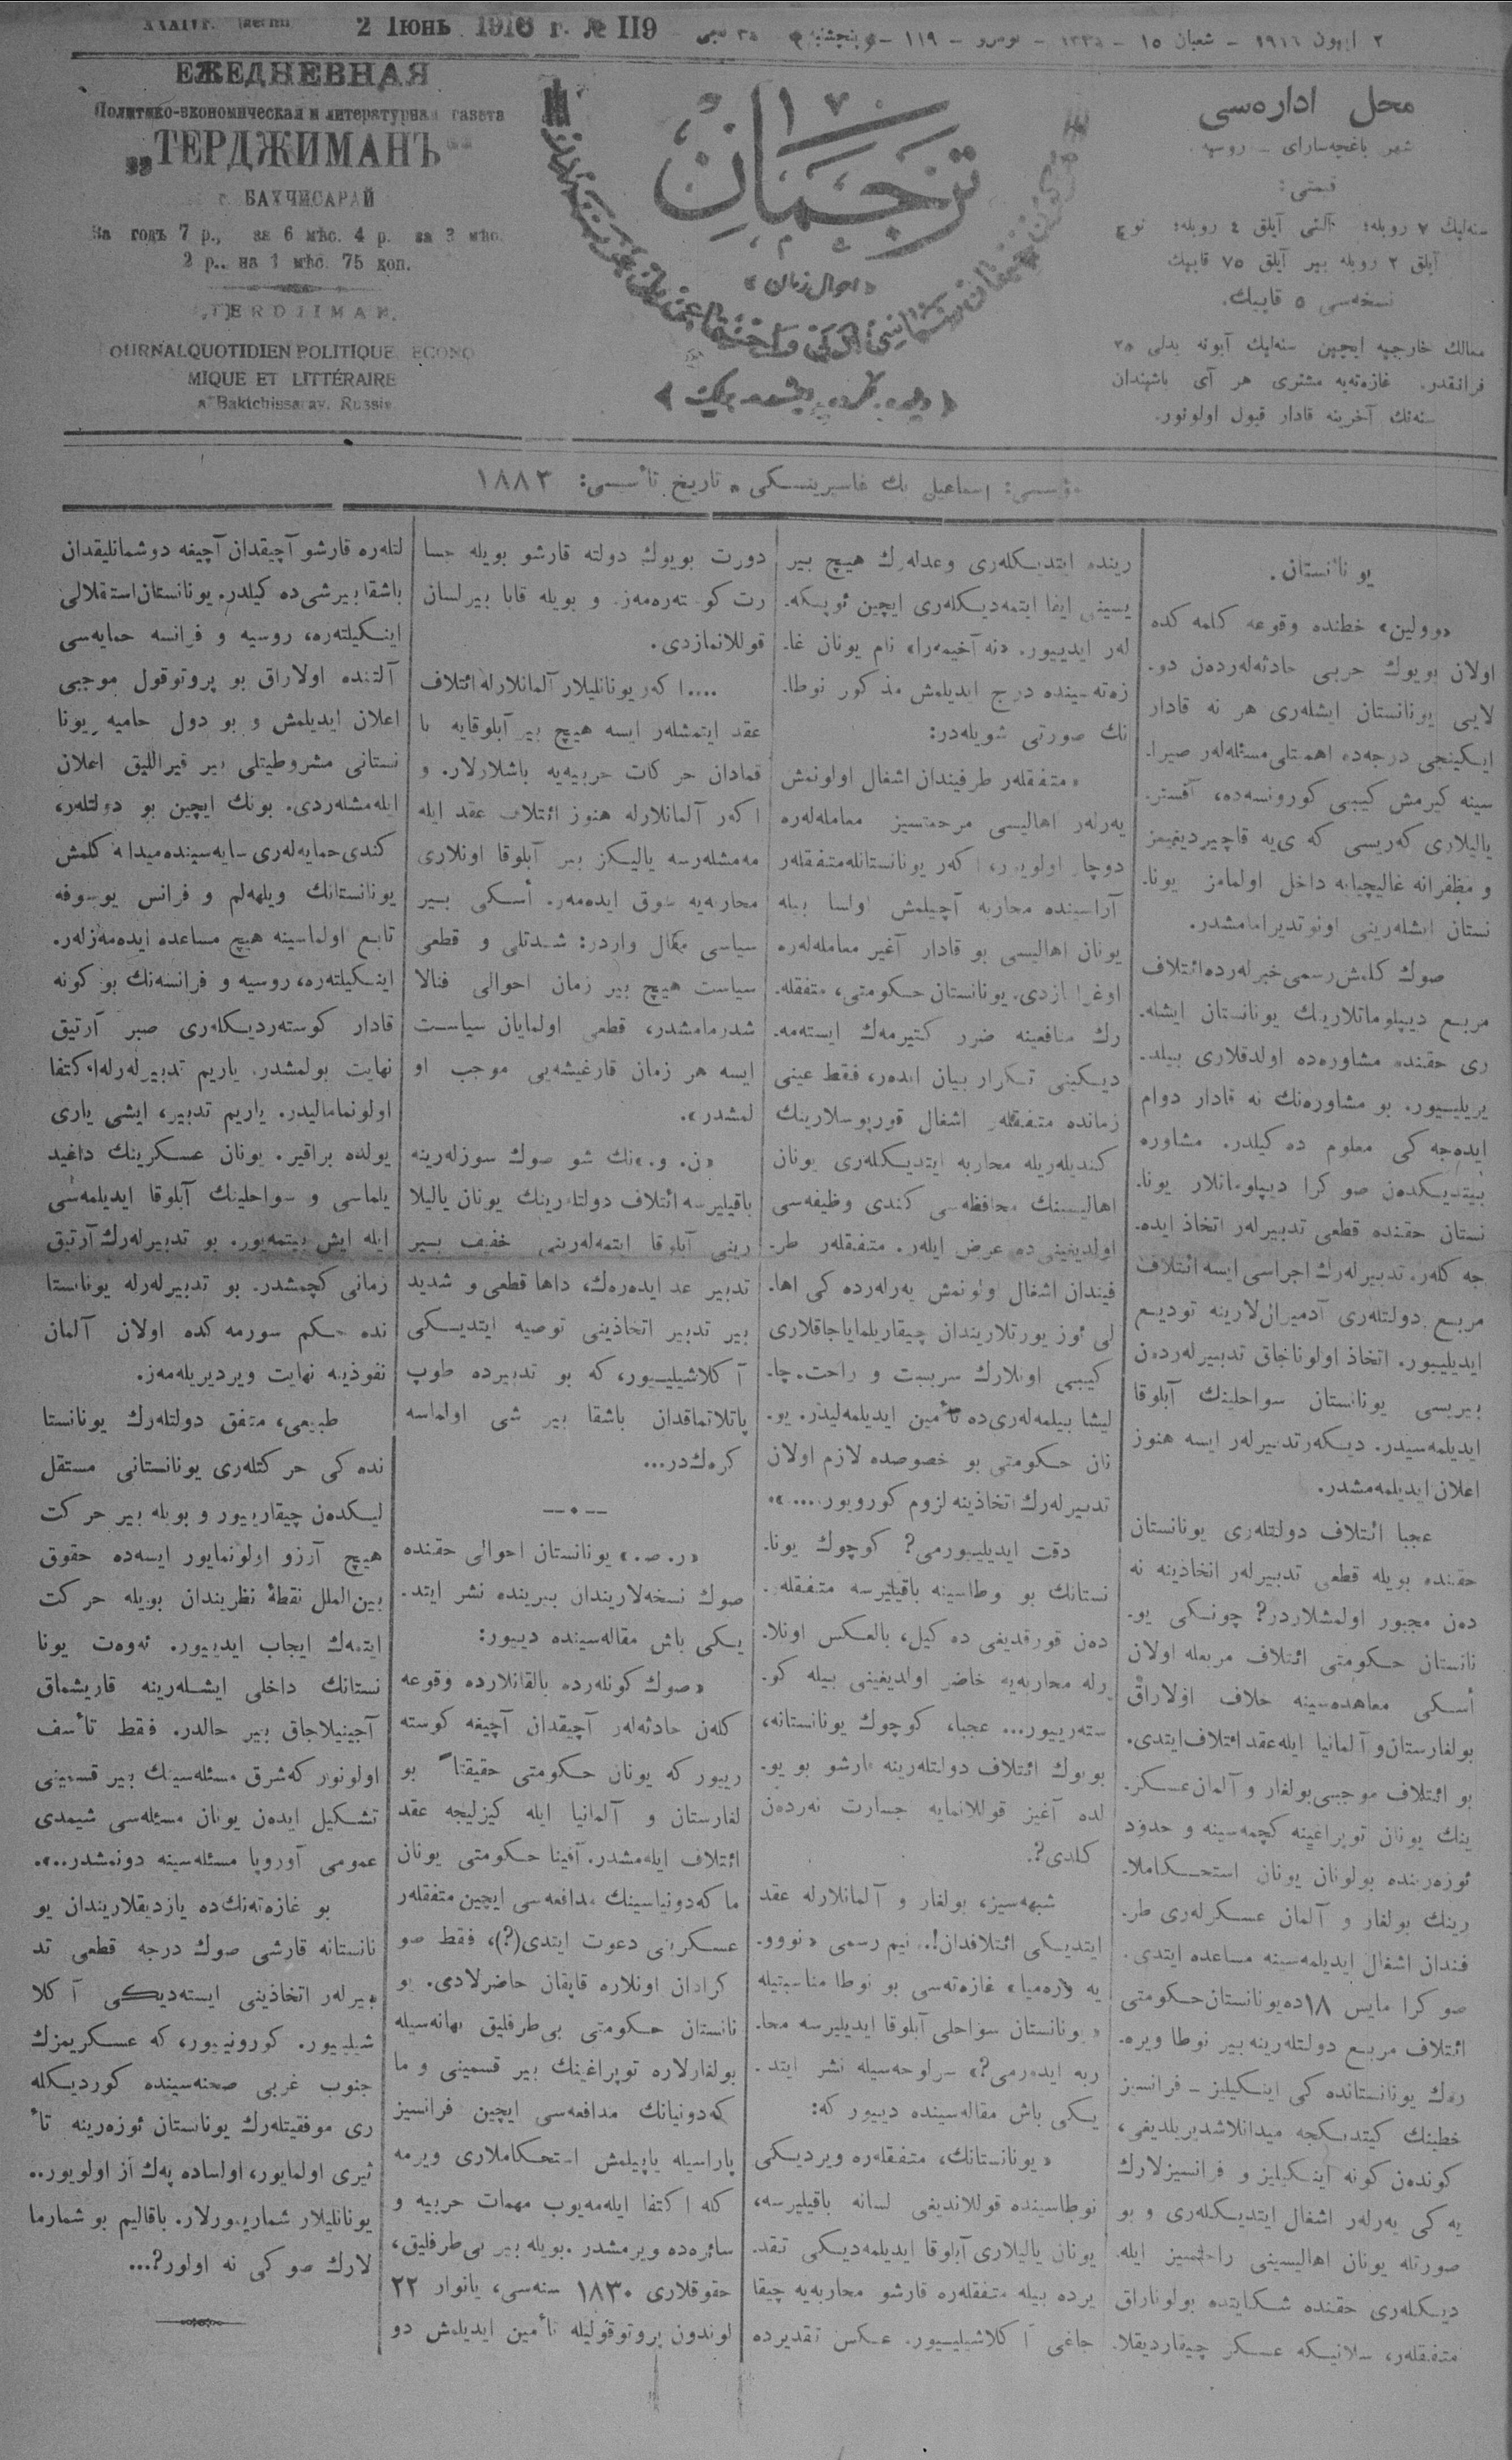 2 Іюнь 1916 г. № 119
٢ ایون ١٩١٦ - شعبان ١٥ - ١٣٣٤ - نومرو - ١١٩ - پنچشنبه
ЕЖЕДНЕВНАЯ
Политико-экономическая и литературная газета
„ТЕРДЖИМАНЪ"
г. БАХЧИСАРАЙ
За годъ 7 р., за 6 мѣс. 4 р. за 3 мѣс.
2 р., на 1 мѣс. 75 коп.
TERDJIMAN.
OURNAL QUOTIDIEN POLITIQUE, ECONO
MIQUE ET LITTÉRAIRE
a Baktchissaray. Russie
ترجمان
«احوال زمان»
«دیلده، فکرده، ایشده بیرلیك»
محل اداره‌سی
شهر باغچه‌سارای ـ روسیه.
قیمتی:
سنه‌لیك ٧ روبله؛ آلتی آیلق ٤ روبله؛ ئوچ
آیلق ٢ روبله بیر آیلق ٧٥ قاپیك
نسخه‌سی ٥ قاپیك.
ممالك خارجیه ایچین سنه‌لیك آبونه بدلی ٢٥
فرانقدر. غازه‌ته‌یه مشتری هر آی باشیندان
سنه‌نك آخرینه قادار قبول اولونور.
مؤسسی: اسماعیل بك غاسپرینسكی ٭ تاریخ تأسیسی: ١٨٨٣
یونانستان.
«وولین» خطنده وقوعه كلمه كده
اولان بویوك حربی حادثه‌لەردەن دو-
لایی یونانستان ایشلەری هر نه قادار
ایكینجی درجه‌ده اهمتلی مسئله‌لەر صیرا-
سینه كیرمش كیبی كورونسه‌ده، آقستر-
یالیلاری كەریسی كەری‌یه قاچیردیغیمز
و مظفرانه غالیچیایه داخل اولمامز یونا-
نستان ایشلەرینی اونوتدیرامامشدر.
صوك كلمش رسمی خبرلەرده ائتلاف
مربع دیپلوماتلارینك یونانستان ایشلە-
ری حقنده مشاوره‌ده اولدقلاری بیلد-
یریلییور. بو مشاوره‌نك نه قادار دوام
ایده‌جه كی معلوم ده كیلدر. مشاوره
بیتدیكدەن صو كرا دیپلوماتلار یونا-
نستان حقنده قطعی تدبیرلەر اتخاذ ایدە-
جه كلەر. تدبیرلەرك اجراسی ایسه ائتلاف
مربع دولتلەری آدمیرال‌لارینه تودیع
ایدیلییور. اتخاذ اولوناجاق تدبیرلەردەن
بیریسی یونانستان سواحلینك آبلوقا
ایدیلمه‌سیدر. دیكەر تدبیرلەر ایسه هنوز
اعلان ایدیلمه‌مشدر.
عجبا ائتلاف دولتلەری یونانستان
حقنده بویله قطعی تدبیرلەر اتخاذینه نه
دەن مجبور اولمشلاردر؟ چونكی یو-
نانستان حكومتی ائتلاف مربعله اولان
أسكی معاهده‌سینه خلاف اولاراق
بولغارستان و آلمانیا ایله عقد ائتلاف ایتدی.
بو ائتلاف موجبی بولغار و آلمان عسكر-
ینك یونان توپراغینه كچمه‌سینه و حدود
ئوزەرینده بولونان یونان استحكاملا-
رینك بولغار و آلمان عسكرلەری طر-
فندان اشغال ایدیلمه‌سینه مساعده ایتدی.
صو كرا مایس ١٨ده یونانستان حكومتی
ائتلاف مربع دولتلەرینه بیر نوطا ویره-
رەك یونانستانده كی اینكیلیز ـ فرانسیز
خطینك كیتدیكجه میدانلاشدیریلدیغی،
كوندەن كونه اینكیلیز و فرانسیزلارك
یه كی یەرلەر اشغال ایتدیكلەری و بو
صورتله یونان اهالیسینی راحتسیز ایله-
دیكلەری حقنده شكایتده بولوناراق
متفقلەر، سلانیكه عسكر چیقاردیقلا-
رینده ایتدیكلەری وعدلەرك هیچ بیر
یسینی ایفا ایتمه‌دیكلەری ایچین ئوپكه-
لەر ایدییور. «نه‌آخیمه‌را» نام یونان غا-
زه‌ته‌سینده درج ایدیلمش مذكور نوطا-
نك صورتی شویلەدر:
«متفقلەر طرفیندان اشغال اولونمش
یەرلەر اهالیسی مرحمتسیز معامله‌لەره
دوچار اولویور، اكەر یونانستانله متفقلەر
آراسینده محاربه آچیلمش اولسا بیله
یونان اهالیسی بو قادار آغیر معامله‌لەره
اوغرامازدی. یونانستان حكومتی، متفقله-
رك منافعینه ضرر كتیرمەك ایسته‌مه-
دیكینی تكرار بیان ایدەر، فقط عینی
زمانده متفقلەر اشغال قورپوسلارینك
كندیلەریله محاربه ایتدیكلەری یونان
اهالیسینك محافظه‌سی كندی وظیفه‌سی
اولدیغینی ده عرض ایلەر. متفقلەر طر-
فیندان اشغال اولونمش یەرلەرده كی اها-
لی ئوز یورتلاریندان چیقاریلمایاجاقلاری
كیبی اونلارك سربست و راحت چا-
لیشا بیلمه‌لەری ده تأمین ایدیلمه‌لیدر. یو-
نان حكومتی بو خصوصده لازم اولان
تدبیرلەرك اتخاذینه لزوم كورویور....».
دقت ایدیلییورمی؟ كوچوك یونا-
نستانك بو نوطاسینه باقیلیرسه متفقلەر-
دەن قورقدیغی ده كیل، بالعكس اونلا-
رله محاربه‌یه حاضر اولدیغینی بیله كو-
ستەرییور... عجبا، كوچوك یونانستانه،
بویوك ائتلاف دولتلەرینه قارشو بویو-
لده آغیز قوللانمایه جسارت نەردەن
كلدی؟.
شبهه‌سیز، بولغار و آلمانلارله عقد
ایتدیكی ائتلافدان!.. نیم رسمی «نووو-
یه ورەمیا» غازه‌ته‌سی بو نوطا مناسبتیله
«یونانستان سواحلی آبلوقا ایدیلیرسه محا-
ربه ایدەرمی؟» سرلوحه‌سیله نشر ایتد-
یكی باش مقاله‌سینده دییور كه:
«یونانستانك، متفقلەره ویردیكی
نوطاسینده قوللاندیغی لسانه باقیلیرسه،
یونان یالیلاری آبلوقا ایدیلمه‌دیكی تقد-
یرده بیله متفقلەره قارشو محاربه‌یه چیقا
جاغی آ كلاشیلییور. عكس تقدیرده
دورت بویوك دولته قارشو بویله جسا
رت كوستەره‌مەز و بویله قابا بیر لسان
قوللانمازدی.
....ا كەر یونانلیلار آلمانلارله ائتلاف
عقد ایتمشلەر ایسه هیچ بیر آبلوقایه با
قمادان حركات حربیه‌یه باشلارلار. و
اكەر آلمانلارله هنوز ائتلاف عقد ایله
مه‌مشلەرسه یالیكز بیر آبلوقا اونلاری
محاربه‌یه سوق ایده‌مەز. أسكی بیر
سیاسی مثال واردر: شدتلی و قطعی
سیاست هیچ بیر زمان احوالی فنالا
شدرمامشدر، قطعی اولمایان سیاست
ایسه هر زمان قارغیشه‌یی موجب او
لمشدر».
«ن. و.»نك شو صوك سوزلەرینه
باقیلیرسه ائتلاف دولتلەرینك یونان یالیلا
رینی آبلوقا ایتمه‌لەرینی خفیف بیر
تدبیر عد ایدەرەك، داها قطعی و شدید
بیر تدبیر اتخاذینی توصیه ایتدیكی
آ كلاشیلییور، كه بو تدبیرده طوپ
پاتلاتماقدان باشقا بیر شی اولماسه
كرەكدر...
«ر. ص.» یونانستان احوالی حقنده
صوك نسخه‌لاریندان بیرینده نشر ایتد-
یكی باش مقاله‌سینده دییور:
«صوك كونلەرده بالقانلارده وقوعه
كلەن حادثه‌لەر آچیقدان آچیغه كوسته
رییور كه یونان حكومتی حقیقتاً بو
لغارستان و آلمانیا ایله كیزلیجه عقد
ائتلاف ایله‌مشدر. آفینا حكومتی یونان
ما كه‌دونیاسینك مدافعه‌سی ایچین متفقلەر
عسكرینی دعوت ایتدی(؟)، فقط صو
كرادان اونلاره قاپقان حاضرلادی. یو
نانستان حكومتی بی‌طرفلیق بهانه‌سیله
بولغارلاره توپراغینك بیر قسمینی و ما
كه‌دونیانك مدافعه‌سی ایچین فرانسیز
پاراسیله یاپیلمش استحكاملاری ویرمه
كله اكتفا ایله‌مه‌یوب مهمات حربیه و
سائره‌ده ویرمشدر. بویله بیر بی‌طرفلیق،
حقوقلاری ١٨٣٠ سنه‌سی، یانوار ٢٢
لوندون پروتوقولیله تأمین ایدیلمش دو
لتلەره قارشو آچیقدان آچیغه دوشمانلیقدان
باشقا بیر شی ده كیلدر. یونانستان استقلالی
اینكیلتەره، روسیه و فرانسه حمایه‌سی
آلتنده اولاراق بو پروتوقول موجبی
اعلان ایدیلمش و بو دول حامیه یونا
نستانی مشروطیتلی بیر قیراللیق اعلان
ایله‌مشلەردی. بونك ایچین بو دولتلەر،
كندی حمایه‌لەری سایه‌سینده میدانه كلمش
یونانستانك ویلهەلم و فرانس یوسوفه
تابع اولماسینه هیچ مساعده ایده‌مەزلەر.
اینكیلتەره، روسیه و فرانسه‌نك بو كونه
قادار كوستەردیكلەری صبر آرتیق
نهایت بولمشدر. یاریم تدبیرلەرله اكتفا
اولونمامالیدر. یاریم تدبیر، ایشی یاری
یولده براقیر. یونان عسكرینك داغید
یلماسی و سواحلینك آبلوقا ایدیلمه‌سی
ایله ایش بیتمه‌یور. بو تدبیرلەرك آرتیق
زمانی كچمشدر. بو تدبیرلەرله یونانستا
نده حكم سورمه كده اولان آلمان
نفوذینه نهایت ویردیریله‌مەز.
طبیعی، متفق دولتلەرك یونانستا
نده كی حركتلەری یونانستانی مستقل
لیكدەن چیقارییور و بویله بیر حركت
هیچ آرزو اولونمایور ایسه‌ده حقوق
بین‌الملل نقطهٔ نظریندان بویله حركت
ایتمەك ایجاب ایدییور. ئەوەت یونا
نستانك داخلی ایشلەرینه قاریشماق
آجینیلاجاق بیر حالدر. فقط تأسف
اولونور كه شرق مسئله‌سینك بیر قسمینی
تشكیل ایدەن یونان مسئله‌سی شیمدی
عمومی آوروپا مسئله‌سینه دونمشدر...».
بو غازه‌ته‌نك ده یازدیقلاریندان یو
نانستانه قارشی صوك درجه قطعی تد
بیرلەر اتخاذینی ایسته‌دیكی آ كلا
شیلییور. كورونییور، كه عسكریمزك
جنوب غربی صحنه‌سینده كوردیكله
ری موفقیتلەرك یونانستان ئوزەرینه تأ
ثیری اولمایور، اولساده پەك آز اولویور..
یونانلیلار شمارییورلار. باقالیم بو شمارما
لارك صو كی نه اولور؟...